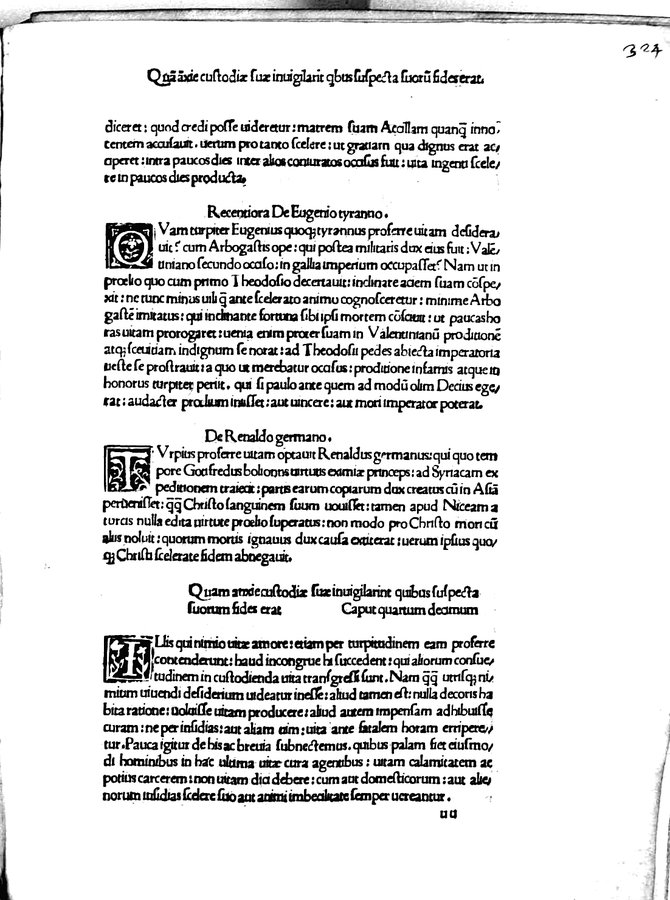 324
Quā āxie custodiæ suæ inuigilarit qbus suspecta suorū fides erat.
diceret: quod credi posse uideretur: matrem suam Atcillam quanq̄ inno/
centem accusauit. uerum pro tanto scelere: ut gratiam qua dignus erat ac/
ciperet: intra paucos dies inter alios coniuratos occisus fuit: uita ingenti scele/
re in paucos dies producta.
Recentiora De Eugenio tyranno.
QVam turpiter Eugenius quoq; tyrannus proferre uitam desidera/
uit? cum Arbogastis ope: qui postea militaris dux eius fuit: Valē/
tiniano secundo occiso: in gallia imperium occupasset? Nam ut in
prœlio quo cum primo Theodosio decertauit: inclinare aciem suam cōspe/
xit: ne tunc minus uili q̄ ante scelerato animo cognosceretur: minime Arbo
gastē imitatus: qui inclinante fortuna sibi ipsi mortem cōsciuit: ut paucas ho
ras uitam prorogaret: uenia enim propter suam in Valentinianū proditionē
atq; sæuitiam indignum se norat: ad Theodosii pedes abiecta imperatoria
ueste se prostrauit: a quo ut merebatur occisus: proditione infamis atque in
honorus turpiter periit. qui si paulo ante quem ad modū olim Decius ege/
rat: audacter prœlium inisset: aut uincere: aut mori imperator poterat.
De Renaldo germano.
TVrpius proferre uitam optauit Renaldus germanus: qui quo tem
pore Gotifredus bolionus uirtutis eximiæ princeps: ad Syriacam ex
peditionem traiecit: partis earum copiarum dux creatus cū in Asiā
peruenisset: q̄q̄ Christo sanguinem suum uouisset: tamen apud Niceam a
turcis nulla edita uirtute prœlio superatus: non modo pro Christo mori cū
aliis noluit: quorum mortis ignauus dux causa extiterat: uerum ipsius quo/
q; Christi scelerate fidem abnegauit.
Quam anxie custodiæ suæ inuigilarint quibus suspecta
suorum fides erat Caput quartum decimum
ILlis qui nimio uitæ amore: etiam per turpitudinem eam proferre
contenderunt: haud incongrue hi succedent: qui aliorum consue/
tudinem in custodienda uita transgressi sunt. Nam q̄q̄ utrisq; ni/
mium uiuendi desiderium uideatur inesse: aliud tamen est: nulla decoris ha
bita ratione: uoluisse uitam producere: aliud autem impensam adhibuisse
curam: ne per insidias: aut aliam uim: uita ante fatalem horam erripere/
tur. Pauca igitur de his ac breuia subnectemus. quibus palam fiet eiusmo/
di hominibus in hac ultima uitæ cura agentibus: uitam calamitatem ac
potius carcerem: non uitam dici debere: cum aut domesticorum: aut alie/
norum insidias scelere suo aut animi imbecilitate semper uereantur.
uu